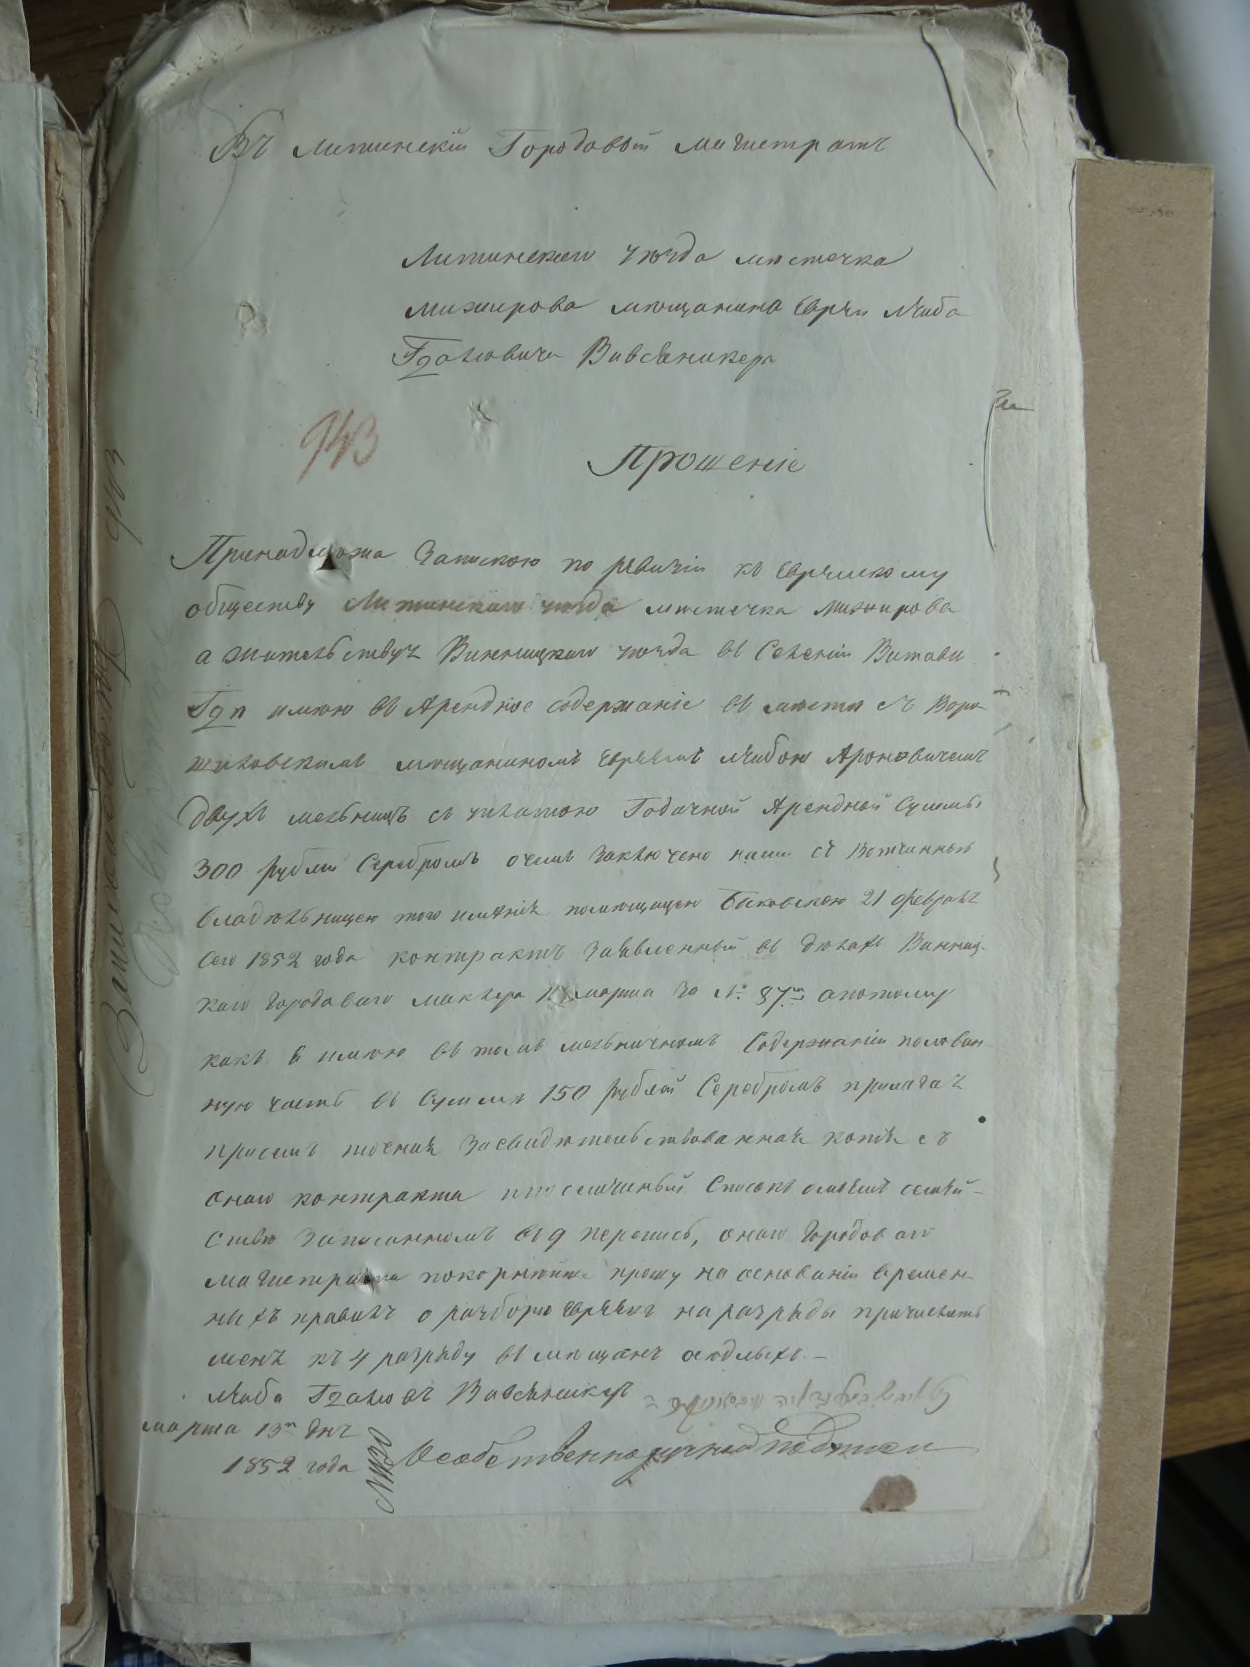 Въ Литинскій Городовой Магистратъ
Литинскаго уѣзда мѣстечка
Межирова мѣщанина Еврея Лейба
Гдалювича
943
Прошеніе
Принадлежа Запискою по ревизіи къ Еврейскому
обществу Литинскаго уѣзда мѣстечка Межирова
а жительствуя Винницкаго уѣзда въ Селеніи
Гдѣ имѣю въ Арендное содержаніе въ мѣстѣ съ Воро
шиловскимъ мѣщаниномъ Евреемъ Лейбою Ароновичемъ
двухъ мельницъ съ уплатою Годичной Арендной Суммы
300 рублей Серебромъ очемъ Заключено нами съ Вотчинною
владѣльницею того имѣнія помѣщицею 21 февраля
сего 1852 года контрактъ Заявленный въ дѣлахъ Винниц
каго Городоваго Маклера марта За № 87 апотому
какъ я имѣю въ томъ мельничномъ Содержаніи половин
ную часть въ Суммѣ 150 рублей Серебромъ прилагая
присемъ точная Засвидѣтельствованная копія съ
онаго контракта и Списокъ омоемъ семей-
ствѣ Записанномъ въ 9 перепись, онаго Городоваго
магистрата покорнѣйше прошу на основаніи времен
ныхъ правилъ о разборѣ Евреевъ на разряды причислить
меня къ 4 разряду въ мѣщанъ осѣдлыхъ. —
Лейба Гдалювъ
марта 13 дня
1852 года